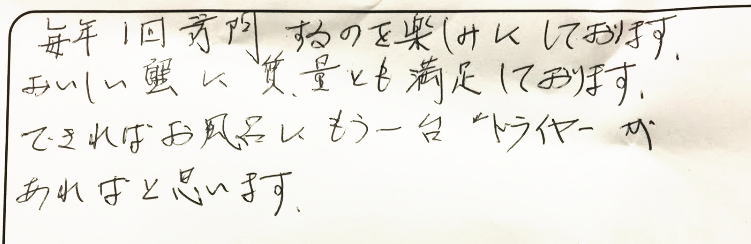 毎年1回訪問するのを楽しみにしております。
おいしい蟹に質、量とも満足しております。
できればお風呂にもう一台ドライヤーが
あればと思います。